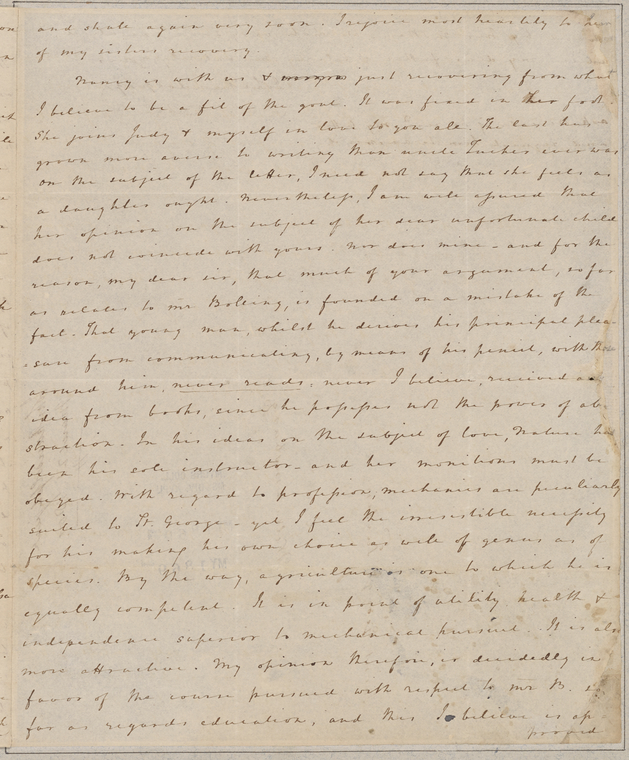 and skate again very soon. I rejoice most heartily to hear
of my sisters recovery.
Nancy is with us & just recovering from what
I believe to be a fit of the gout. It was fixed in her foot.
She joins Judy & myself in love to you all. The last has
grown more averse to writing than uncle Tucker ever was
on the subject of the letter, I need not say that she feels as
a daughter ought. Nevertheless, I am well assured that
her opinion on the subject of her dear unfortunate child
does not coincide with yours. Nor does mine – and for the
reason, my dear sir, that much of your argument, so far
as relates to mr Bolling, is founded on a mistake of the
fact. That young man, whilst he derives his principal plea
sure from communicating, by means of his pencil, with those
around him, never reads: never I believe, received an
idea from books, since he possesses not the power of ab
straction. In his ideas on the subject of love, Nature has
been his sole instructor – and her monitions must be
obeyed. With regard to profession, mechanics are peculiarly
suited to St. George – yet I feel the irresistible necessity
for his making his own choice as well of genus as of
species. By the way, agriculture is one to which he is
equally competent. It is in point of utility health &
independence superior to mechanical pursuit. It is also
more attractive. My opinion therefore, is decidedly in
favor of the course pursued with respect to mr B. so
far as regards education, and this I believe is ap
proved